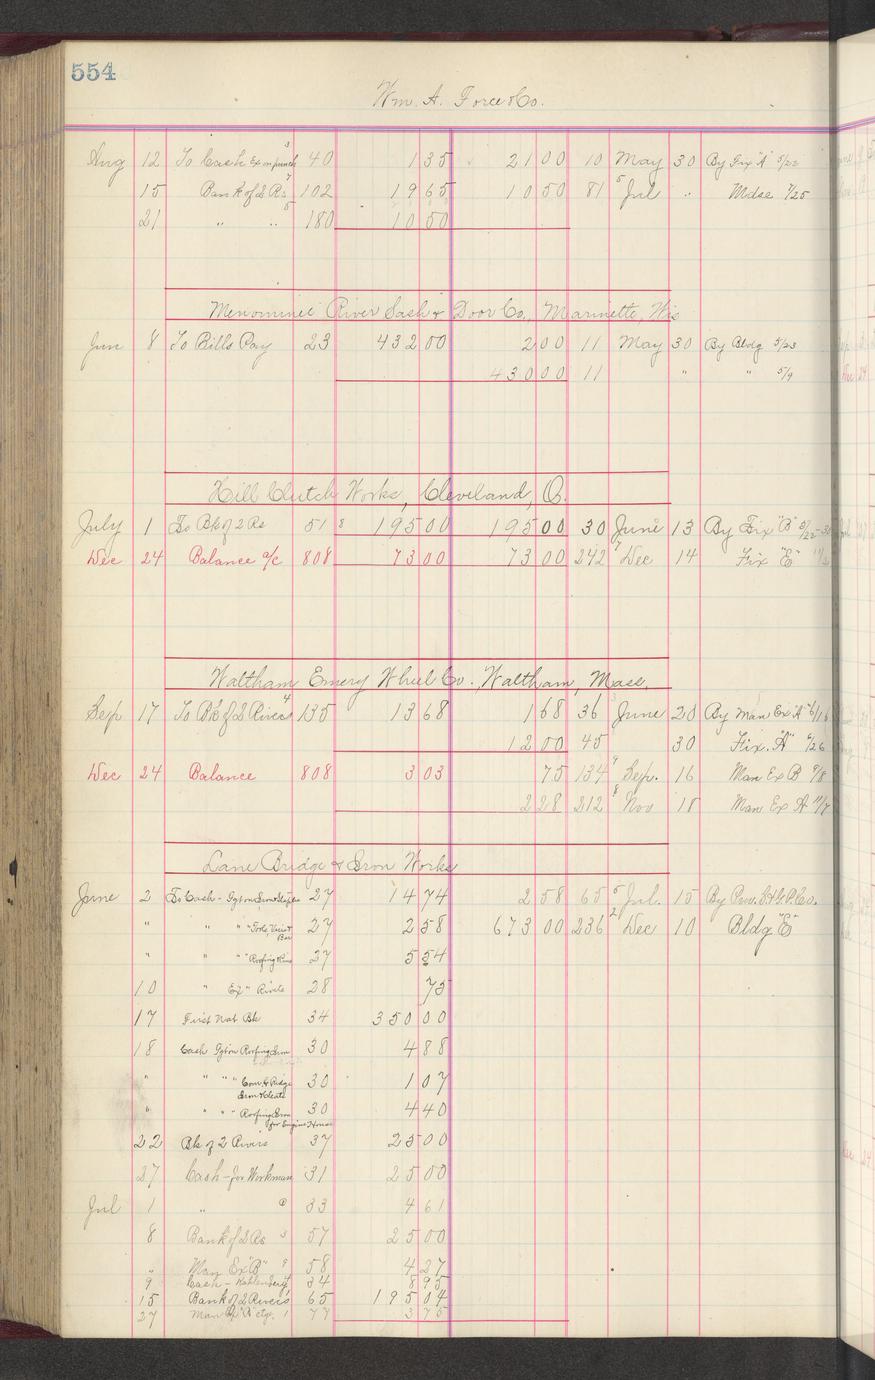 554
Wm. A. Force & Co.
Aug 12 To Cash Ex on punch 3 40 1 35 21 00 10 May 30 By Fix "A" 5/22
15 Bank of 2 Rs 7 102 19 65 10 50 81 5 Jul " Mdse 7/25
21 " " 5 180 10 50
Menominee River Sash & Door Co., Marinette, Wis
Jun 8 To Bills Pay 23 432 00 2 00 11 May 30 By Bldg 5/23
430 00 11 " " 5/9
Hill Clutch Works, Cleveland, O.
July 1 To Bk of 2 Rs 51 8 195 00 195 00 30 June 13 By Fix "B"
Dec 24 Balance a/c 808 73 00 73 00 242 7 Dec 14 Fix "E"
Waltham Emery Wheel Co., Waltham, Mass.
Sep 17 To Bk of 2 Rivers 4 135 13 68 1 68 36 June 20 By Man Ex "A" 6/16
12 00 45 30 Fix. "A" 6/26
Dec 24 Balance 808 3 03 75 134 9 Sep. 16 Man Ex B 9/8
2 28 212 8 Nov 18 Man Ex A 11/7
Lane Bridge & Iron Works
June 2 To Cash - Fgt on Iron & Staples 27 14 74 2 58 65 5 Jul. 15 By
" " " " Tools, 27 2 58 673 00 236 2 Dec 10 Bldg "E"
" " " " Roofing 27 5 54
10 " Ex " Rivets 28 75
17 First Nat Bk 34 350 00
18 Cash Fgt on Roofing Iron 30 4 88
" " " " Corr. & Ridge Iron & Cleats 30 1 07
" " " " Roofing Iron for Engine House 30 4 40
22 Bk of 2 Rivers 37 25 00
27 Cash - for Workman 31 25 00
Jul 1 " 33 4 61
8 Bank of 2 Rs 5 57 25 00
" Man Ex "B" 9 58 4 27
9 Cash - 34 8 95
15 Bank of 2 Rivers 65 195 04
27 Man Ex "A" 1 77 3 75